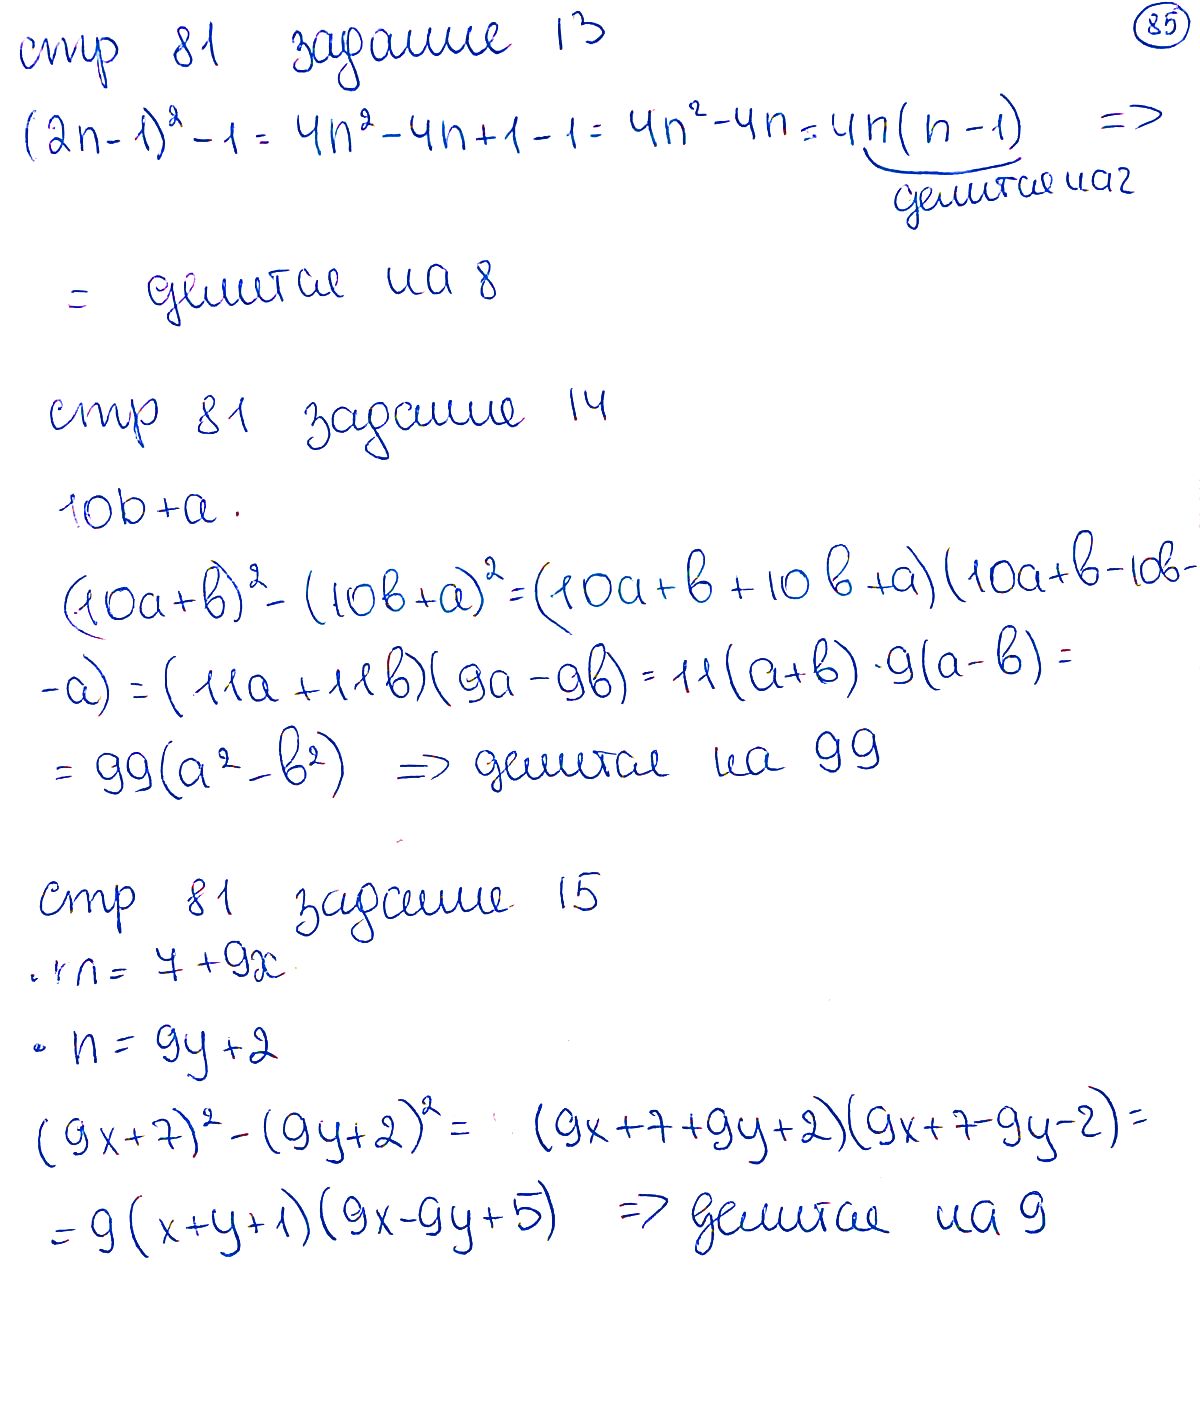 85
стр 81 задание 13
(2n-1)² - 1 = 4n² - 4n + 1 - 1 = 4n² - 4n = 4n(n-1) =>
делится на 2
= делится на 8
стр 81 задание 14
10b+a.
(10a+b)² - (10b+a)² = (10a+b+10b+a)(10a+b-10b-
-a) = (11a+11b)(9a-9b) = 11(a+b)·9(a-b) =
= 99(a²-b²) => делится на 99
стр 81 задание 15
n = 7+9x
· n = 9y+2
(9x+7)² - (9y+2)² = (9x+7+9y+2)(9x+7-9y-2) =
= 9(x+y+1)(9x-9y+5) => делится на 9